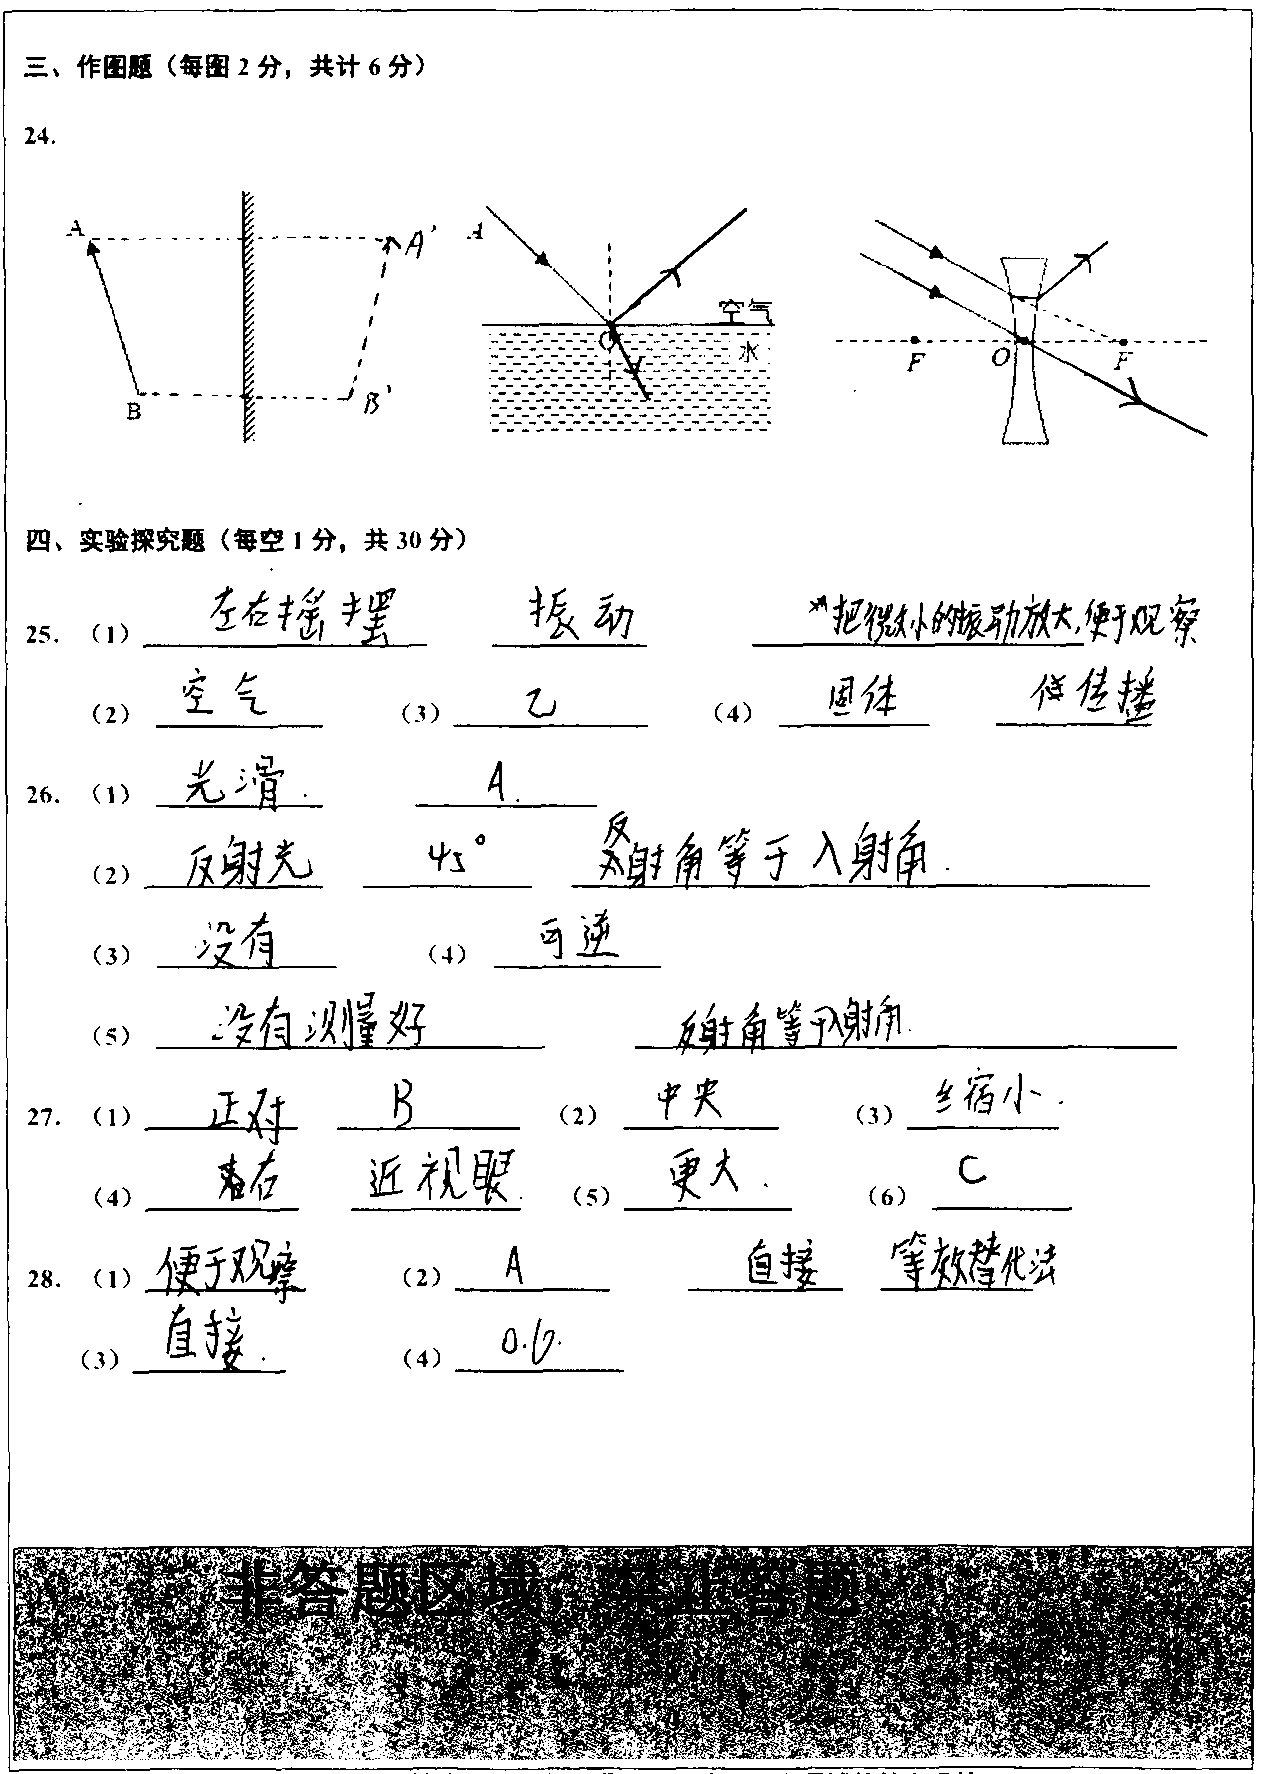 三、作图题（每图 2 分，共计 6 分）
24.
A A' A 空气
O 水 F O F
B B'
四、实验探究题（每空 1 分，共 30 分）
25. （1） 左右摇摆 振动 把微小的振动放大,便于观察
（2） 空气 （3） 乙 （4） 固体 传播
26. （1） 光滑. A.
（2） 反射光 45° 反射角等于入射角.
（3） 没有 （4） 可逆
（5） 没有测量好 反射角等于入射角.
27. （1） 正对 B （2） 中央 （3） 缩小.
（4） 右 近视眼. （5） 更大. （6） C
28. （1） 便于观察 （2） A 直接 等效替代法
（3） 直接. （4） 0.6.
非答题区域，禁止答题